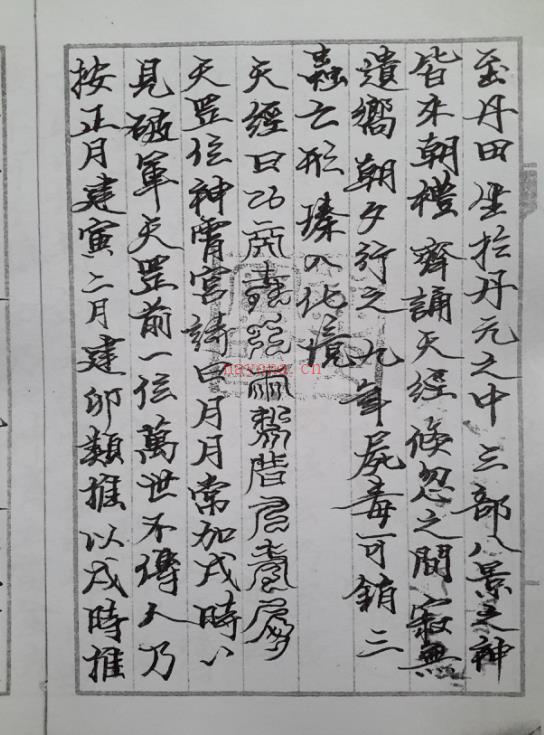 至丹田坐於丹元之中三部八景之神
皆来朝禮齊誦天經倏忽之間寂無
遺嚮朝夕行之九年尸毒可銷三
蟲亡形臻入化境
天經曰
天罡位神霄宮詩曰月月常加戌時時
見破軍天罡前一位萬世不傳人乃
按正月建寅二月建卯類推以戌時推
nayona.cn